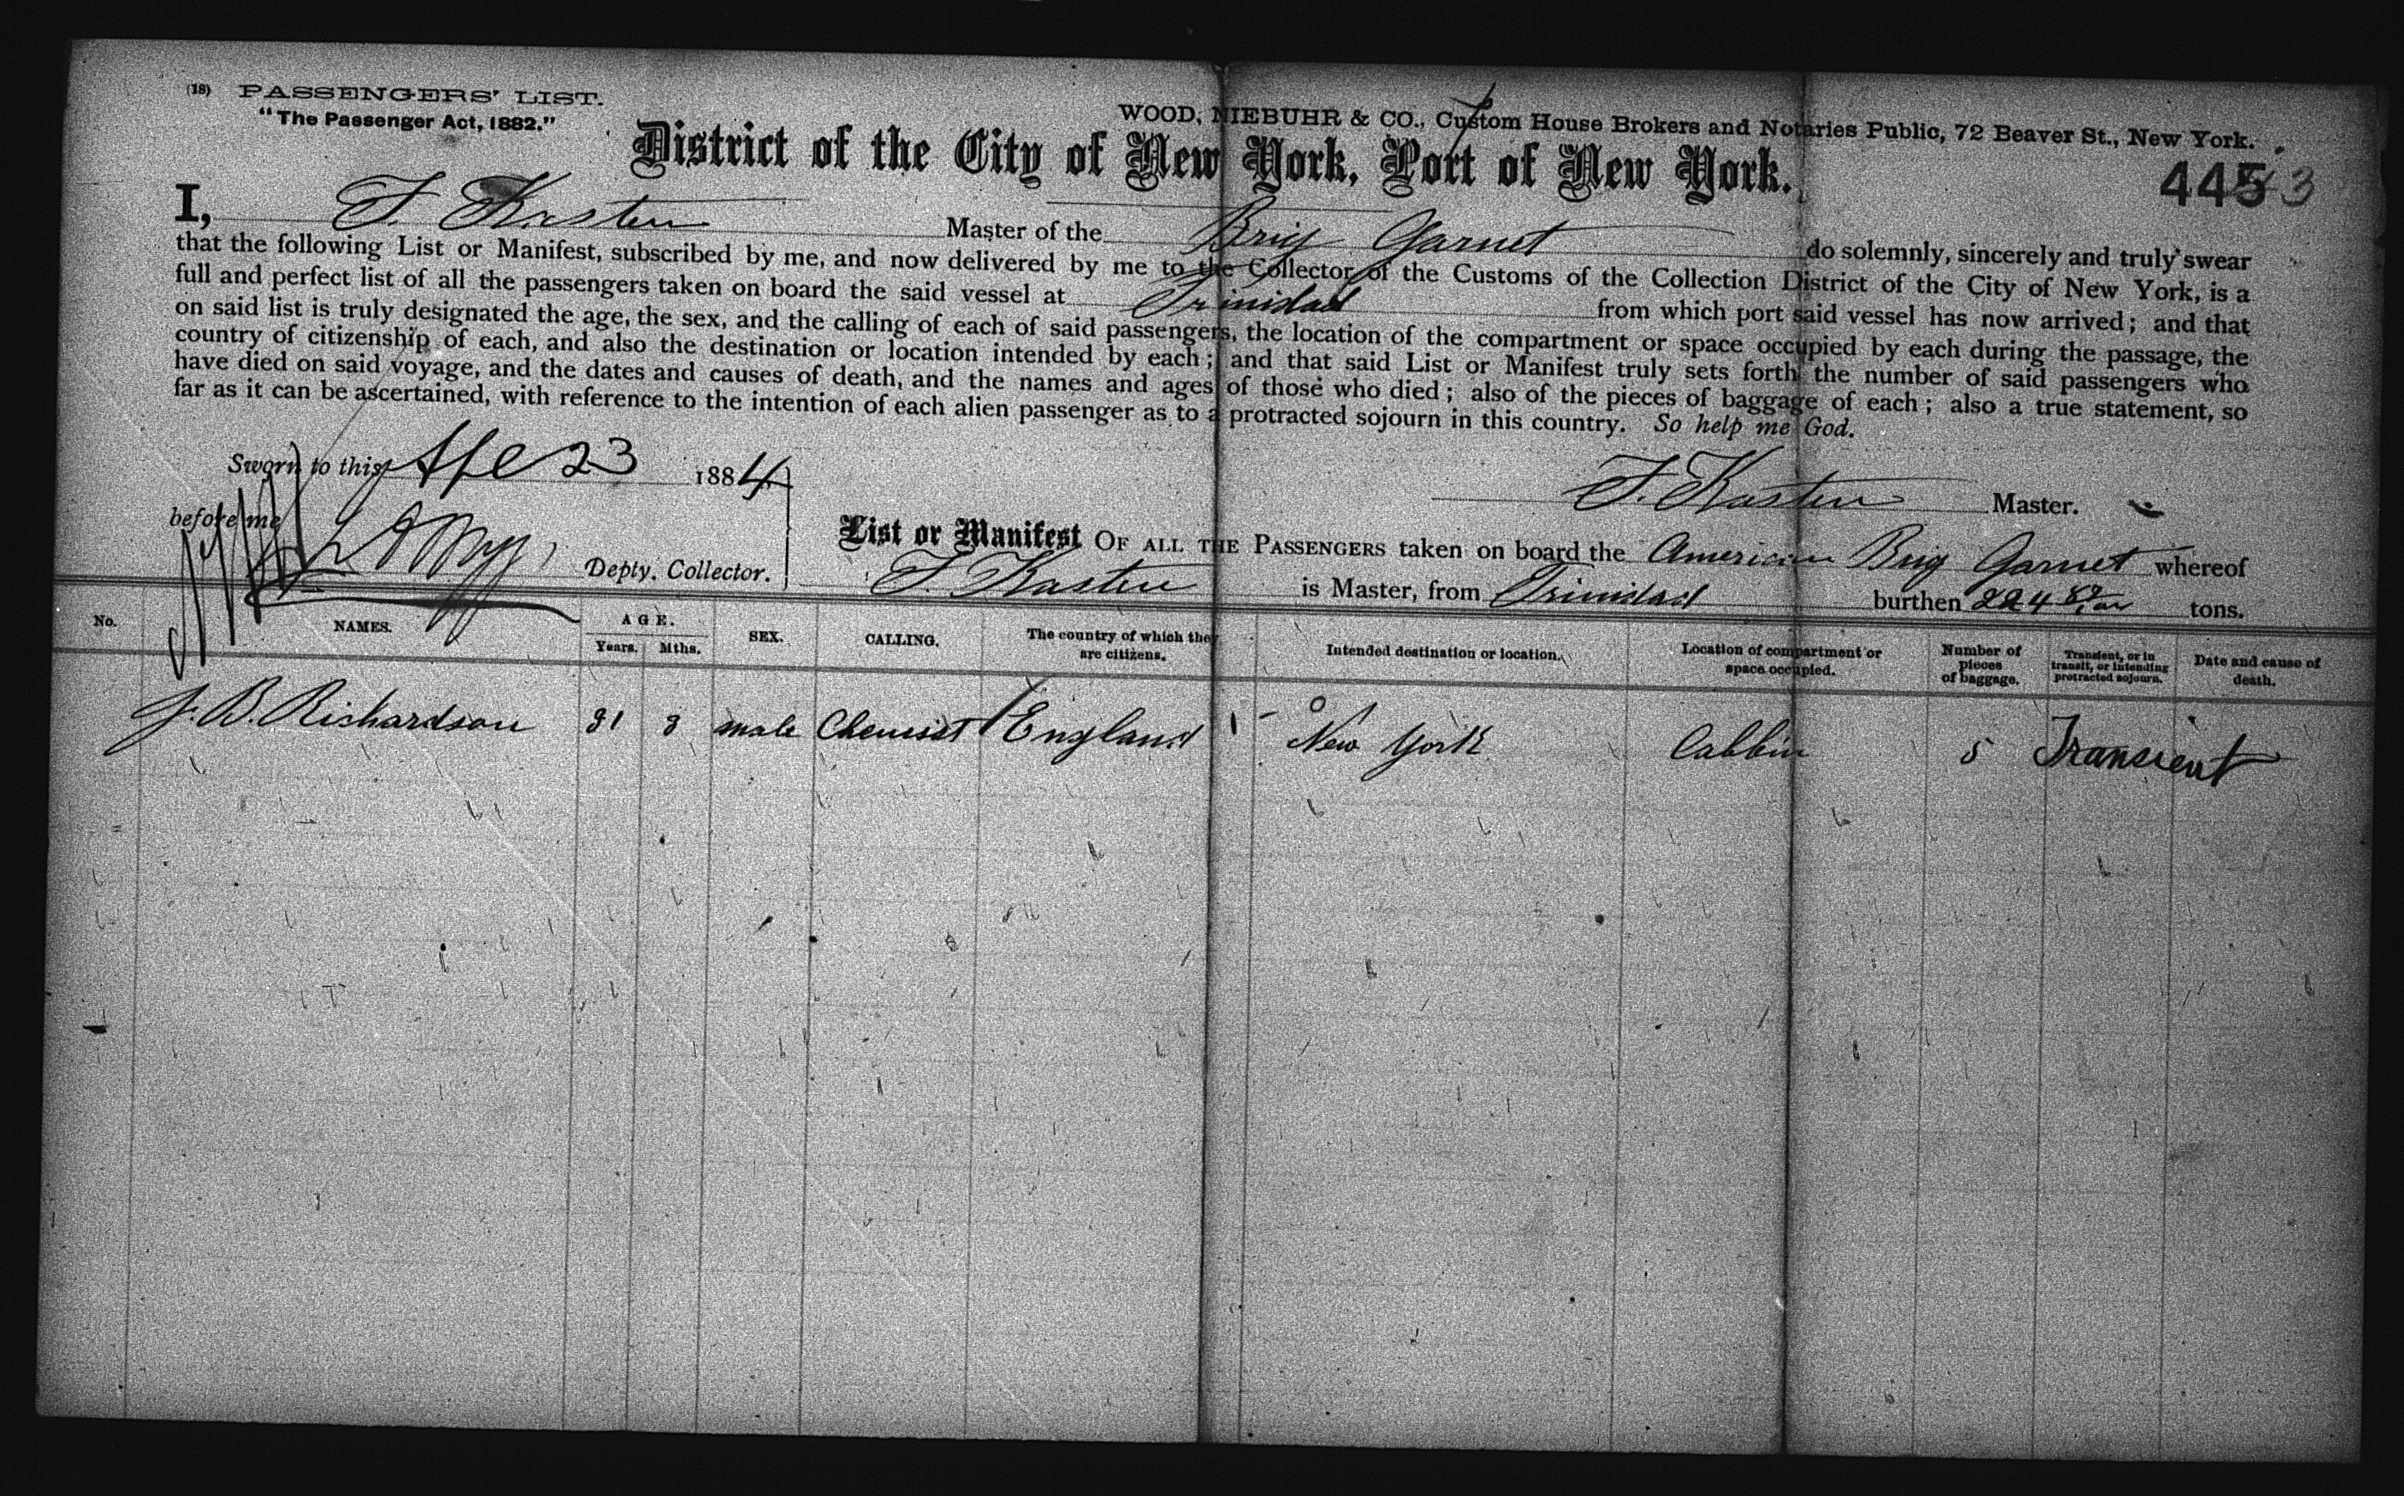 (18) PASSENGERS' LIST.
"The Passenger Act, 1882."
WOOD, NIEBUHR & CO., Custom House Brokers and Notaries Public, 72 Beaver St., New York.
District of the City of New York, Port of New York.
445 3
I, F. Kasten Master of the Brig Garnet do solemnly, sincerely and truly swear
that the following List or Manifest, subscribed by me, and now delivered by me to the Collector of the Customs of the Collection District of the City of New York, is a
full and perfect list of all the passengers taken on board the said vessel at Trinidad from which port said vessel has now arrived; and that
on said list is truly designated the age, the sex, and the calling of each of said passengers, the location of the compartment or space occupied by each during the passage, the
country of citizenship of each, and also the destination or location intended by each; and that said List or Manifest truly sets forth the number of said passengers who
have died on said voyage, and the dates and causes of death, and the names and ages of those who died; also of the pieces of baggage of each; also a true statement, so
far as it can be ascertained, with reference to the intention of each alien passenger as to a protracted sojourn in this country. So help me God.
Sworn to this Apl 23 1884
F. Kasten Master.
before me
Depty. Collector.
List or Manifest OF ALL THE PASSENGERS taken on board the American Brig Garnet whereof
F. Kasten is Master, from Trinidad burthen 224 tons.
No. NAMES. AGE. Years. Mths. SEX. CALLING. The country of which they are citizens. Intended destination or location. Location of compartment or space occupied. Number of pieces of baggage. Transient, or in transit, or intending protracted sojourn. Date and cause of death.
J. B. Richardson 31 8 male Chemist England New York Cabbin 5 Transient